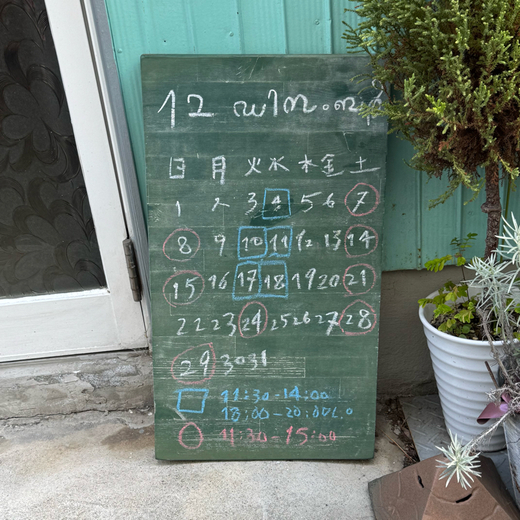 12
日 月 火 水 木 金 土
1 2 3 4 5 6 7
8 9 10 11 12 13 14
15 16 17 18 19 20 21
22 23 24 25 26 27 28
29 30 31
11:30-14:00
18:00-20:00L.O
11:30-15:00